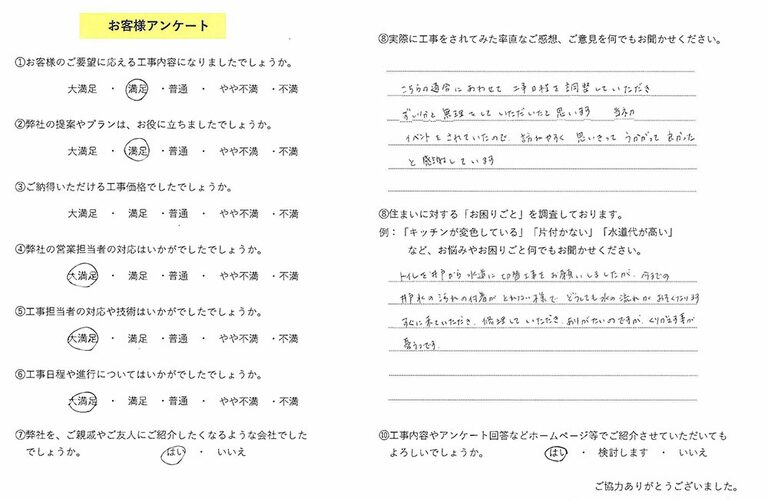 お客様アンケート
①お客様のご要望に応える工事内容になりましたでしょうか。
大満足 ・ 満足 ・普通 ・ やや不満 ・不満
②弊社の提案やプランは、お役に立ちましたでしょうか。
大満足 ・ 満足 ・普通 ・ やや不満 ・不満
③ご納得いただける工事価格でしたでしょうか。
大満足 ・ 満足 ・普通 ・ やや不満 ・不満
④弊社の営業担当者の対応はいかがでしたでしょうか。
大満足 ・ 満足 ・普通 ・ やや不満 ・不満
⑤工事担当者の対応や技術はいかがでしたでしょうか。
大満足 ・ 満足 ・普通 ・ やや不満 ・不満
⑥工事日程や進行についてはいかがでしたでしょうか。
大満足 ・ 満足 ・普通 ・ やや不満 ・不満
⑦弊社を、ご親戚やご友人にご紹介したくなるような会社でした
でしょうか。 はい ・ いいえ
⑧実際に工事をされてみた率直なご感想、ご意見を何でもお聞かせください。
こちらの都合にあわせて 工事日程を調整していただき
ずい分と無理をしていただいたと思います 当初
イベントをされていたので、訪ねやすく 思いきって うかがって良かった
と感謝しています
⑧住まいに対する「お困りごと」を調査しております。
例：「キッチンが変色している」「片付かない」「水道代が高い」
など、お悩みやお困りごと何でもお聞かせください。
トイレを井戸から水道に切替工事をお願いしましたが、今までの
井戸水の汚れの付着がとれない様で どうしても水の流れがおそくなります
すぐに来ていただき、修理していただき、ありがたいのですが、くりかえす事が
憂うつです
⑩工事内容やアンケート回答などホームページ等でご紹介させていただいても
よろしいでしょうか。 はい ・ 検討します ・ いいえ
ご協力ありがとうございました。